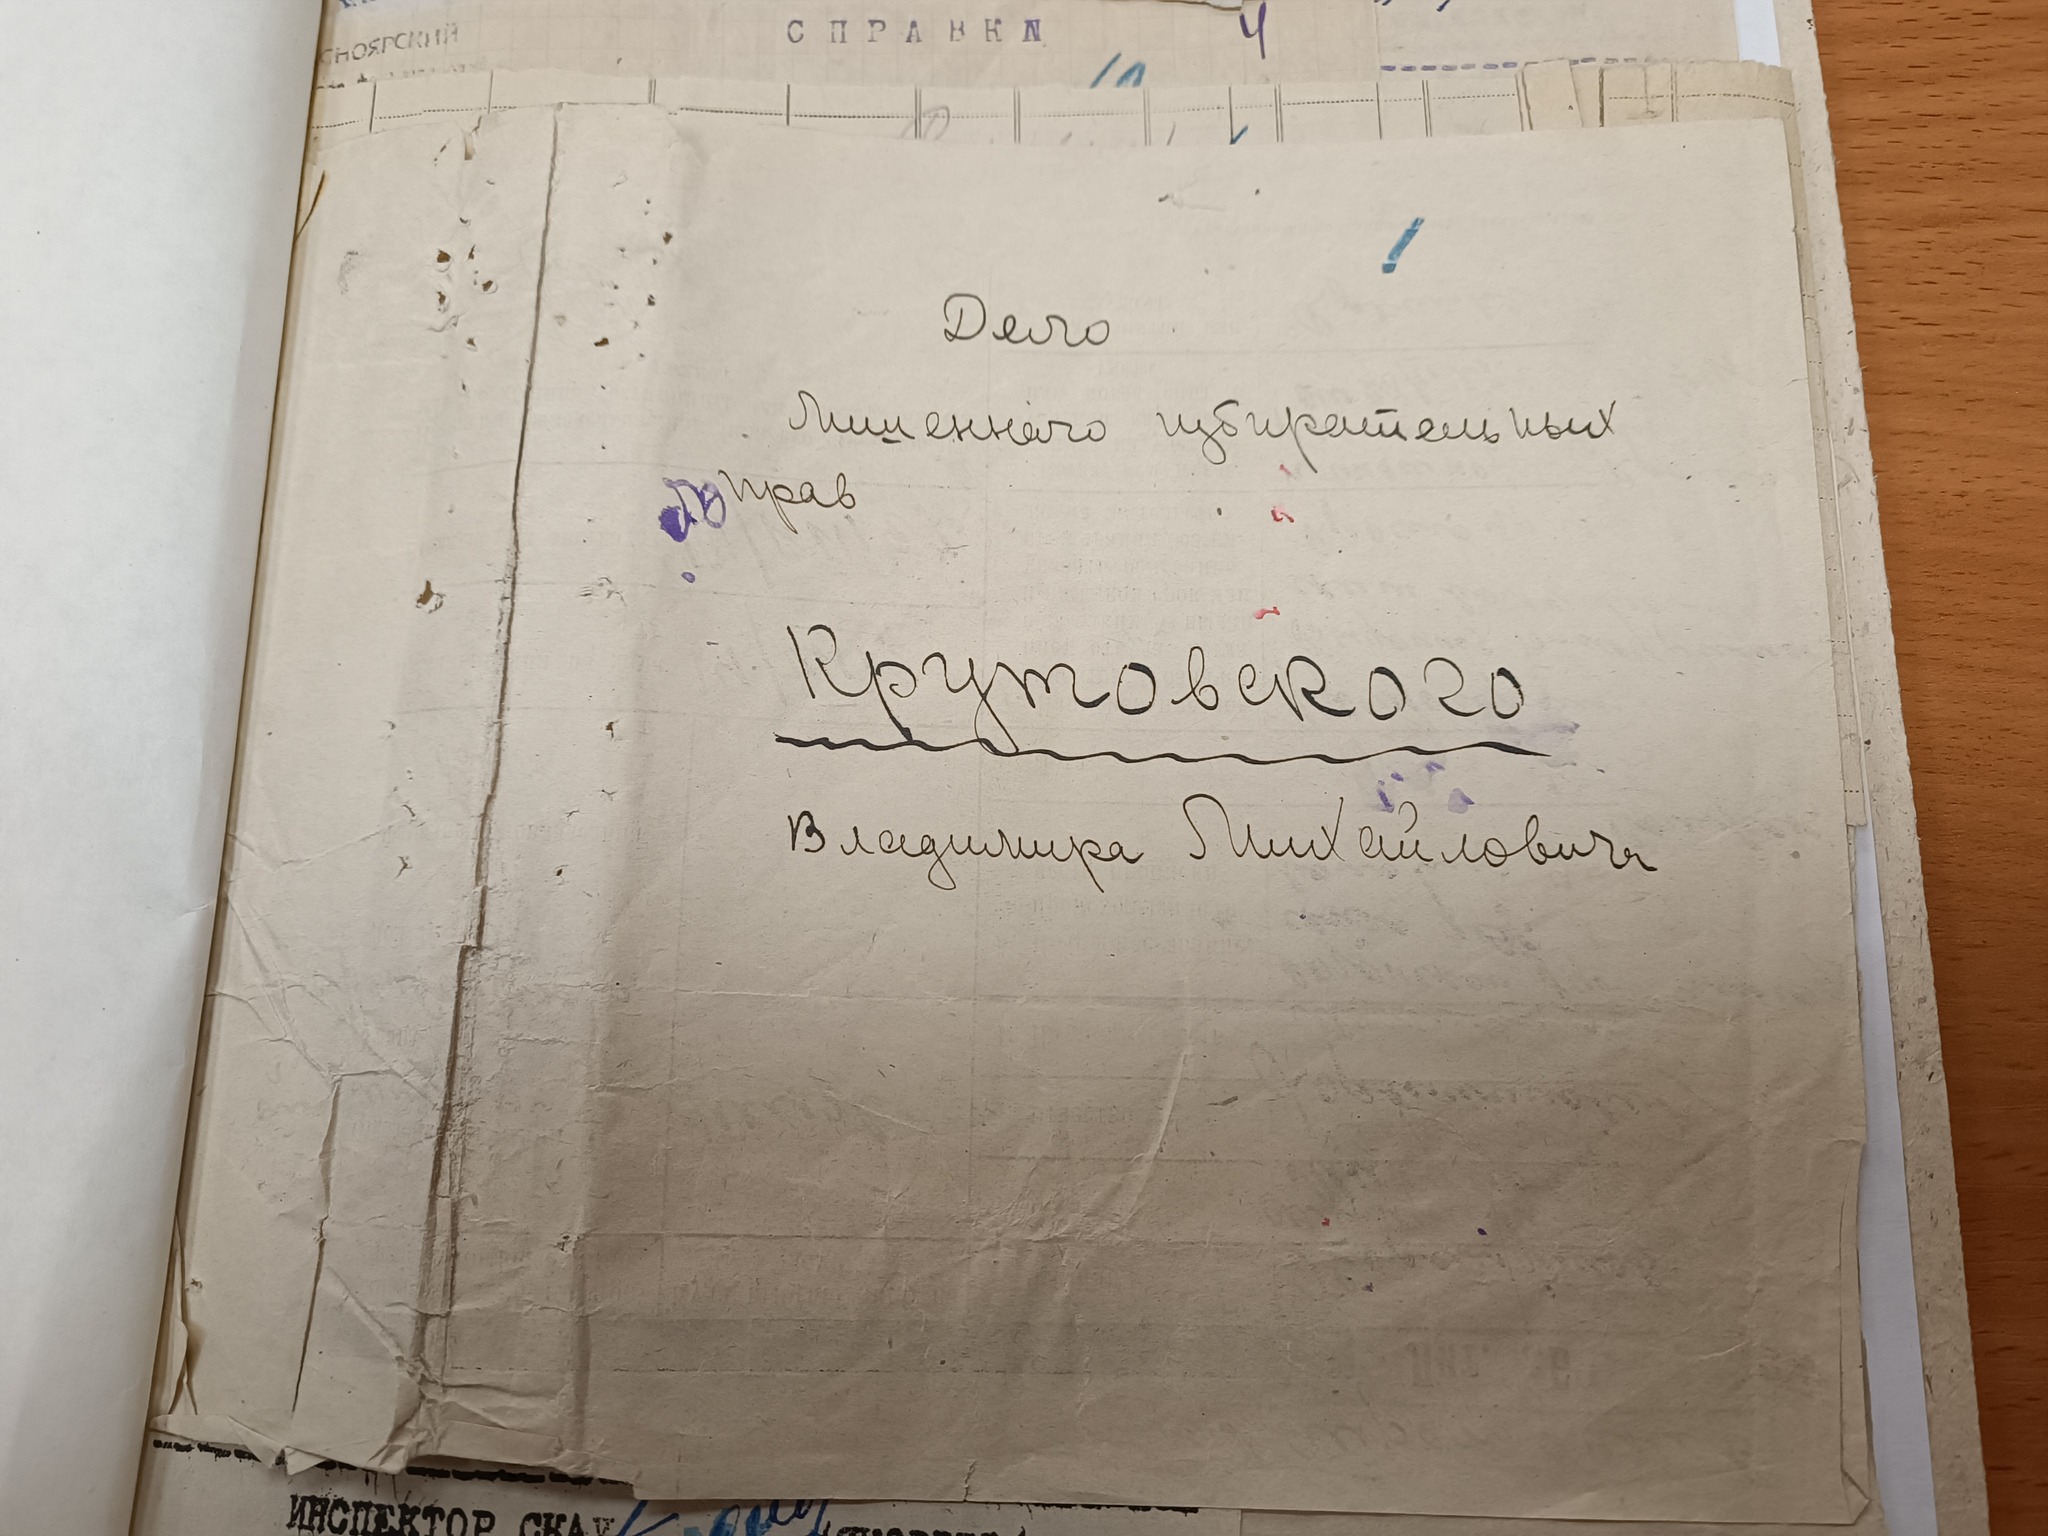 СНОЯРСКИЙ
СПРАВКИ
4
Дело
Лишеннаго избирательных
прав
Крутовского
Владимира Михайловича
ИНСПЕКТОР СКАУ